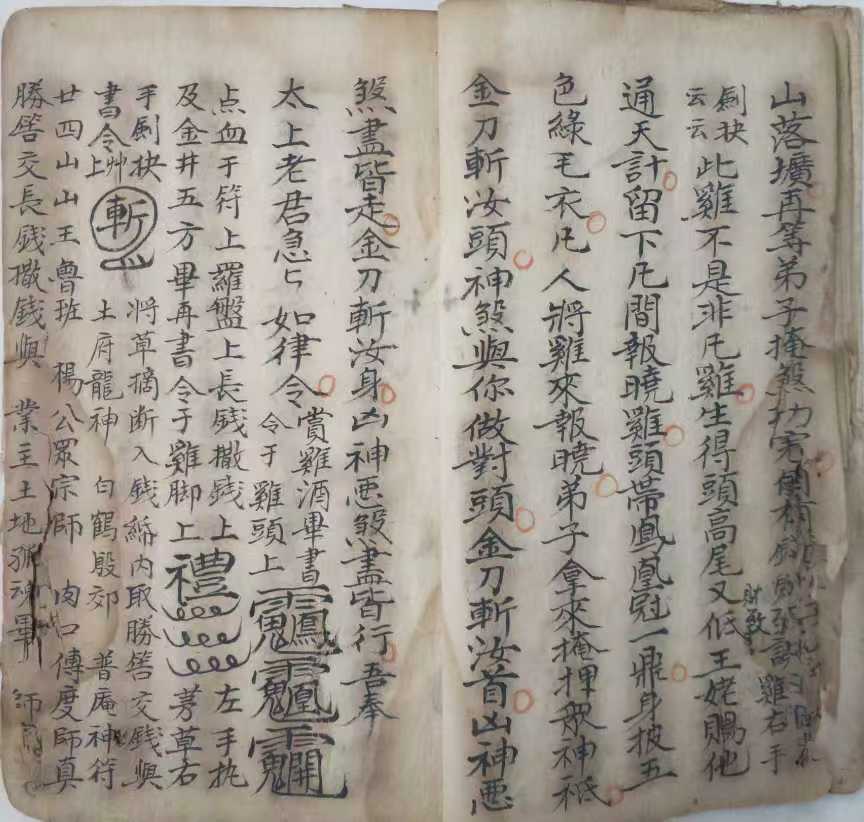 山落壙再等弟子掩煞功完備 雞右手
劍抉云云此雞不是非凡雞生得頭高尾又低王姥賜他
財散
通天計留下凡間報曉雞頭帶鳳凰冠一鼎身披五
色綠毛衣凡人將雞來報曉弟子拿來掩押般神祗
金刀斬汝頭神煞與你做對頭金刀斬汝首凶神惡
煞盡皆走金刀斬汝身凶神惡煞盡皆行吾奉
太上老君急匕如律令賞雞酒畢書令于雞頭上
点血于符上羅盤上長錢撒錢上
及金井五方畢再書令于雞脚上禮 左手执
手劍抉 將草摘断入錢紙内取勝筶交錢與
茅草右
書令艸上斬 土府龍神 白鶴殷郊 普庵神符
廿四山山王魯班 楊公眾宗師 肉口傳度師真
勝筶交長錢撒錢與 業主土地 畢 師